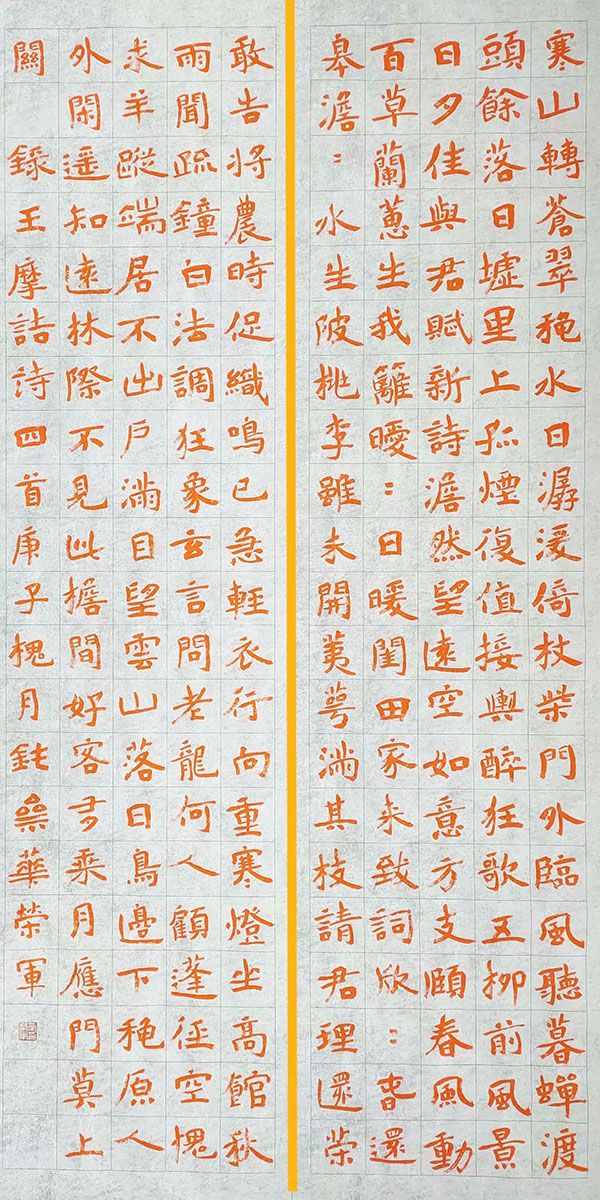 寒山轉蒼翠穐水日潺湲倚杖柴門外臨風聽暮蟬渡
頭餘落日墟里上孤煙復值接輿醉狂歌五柳前風景
日夕佳與君賦新詩澹然望遠空如意方支頤春風動
百草蘭蕙生我籬曖:日暖閨田家來致詞欣:春還
皋澹:水生陂桃李雖未開荑萼滿其枝請君理還榮
敢告將農時促織鳴已急輕衣行向重寒燈坐高館秋
雨聞疏鐘白法調狂象玄言問老龍何人顧蓬徑空愧
求羊蹤端居不出戶滿目望雲山落日鳥邊下穐原人
外閑遥知遠林際不見此檐間好客多乘月應門莫上
關 錄王摩詰詩四首庚子槐月鈍華榮軍